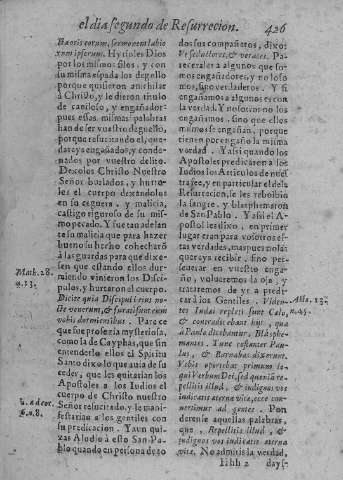 el dia segundo de Resurrecion. 426
oris eorum, sermonem labio
rum ipsorum. Hyrieles Dios
por los mismos filos, y con
su misma espada los deguello
porque quisieron anichilar
à Christo, y le dieron titulo
de caviloso, y engañador:
pues essas mismas palabras
han de ser vuestro deguello,
porque resucitando el, que-
dareys engañados, y conde-
nados por vuestro delito.
Dexolos Christo Nuestro
Señor burlados, y hurto-
les el cuerpo dexandolos
en su ceguera, y malicia,
castigo riguroso de su mis-
mo pecado. Y fue tan adelan
te su malicia que para hazer
bueno su hecho cohecharõ
à las guardas para que dixes-
sen que estando ellos dur-
miendo vinieron los Disci-
pulos, y hurtaron el cuerpo.
Math. 28.
n. 13.
Dicite quia Discipuli eius noc-
te venerunt, & furati sunt eum
vobis dormientibus. Parece
que fue profecia mysteriosa,
como la de Cayphas, que sin
entenderlo ellos el Spiritu
Santo dixo lo que avia de su
ceder, que les quitarian los
Apostoles a los Iudios el
cuerpo de Christo nuestro
Señor resucitado, y le mani-
festarian a los gentiles con
su predicacion. Y aun qui-
zas Aludio à esto San Pa-
blo quando en persona de to
dos sus compañeros, dixo:
Vt seductores, & veraces. Pa-
recerales a algunos que so-
mos engañadores, y no lo so-
mos, sino verdaderos. Y si
engañamos a algunos es con
la verdad. Y nosotros no los
engañamos, sino que ellos
mismos se engañan, porque
tienen por engaño la misma
verdad. Y assi quando los
Apostoles predicaron a los
Indios los Articulos de nues
tra fee, y en particular el de la
Resurrecion, se les rebolbio
la sangre, y blasphemaron
de San Pablo. Y assi el Apo-
stol les dixo, en primer
lugar eran para vosotros es-
tas verdades, mas pues no las
quereys recibir, sino per-
severar en vuestro enga-
ño, volveremos la oja, y
trataremos de yr a predi-
carà los Gentiles. Viden-
Actu. 13.
n. 45.
tes Iudæi repleti sunt Celo,
& contradicebant his, quæ
à Paulo dicebantur, Blasphe-
mantes. Tunc constanter Pau-
lus, & Barnabas dixerunt.
Vobis oportebat primum lo-
qui Verbum Dei, sed quoniã re-
pellitis illud, & indignos vos
iudicatis æternæ vitæ, ecce con-
vertimur ad gentes. Pon
derense aquellas palabras,
que Repellitis illud, &
indignos vos iudicatis æternæ
vitæ. No admitis la verdad,
Hhh 2 days-